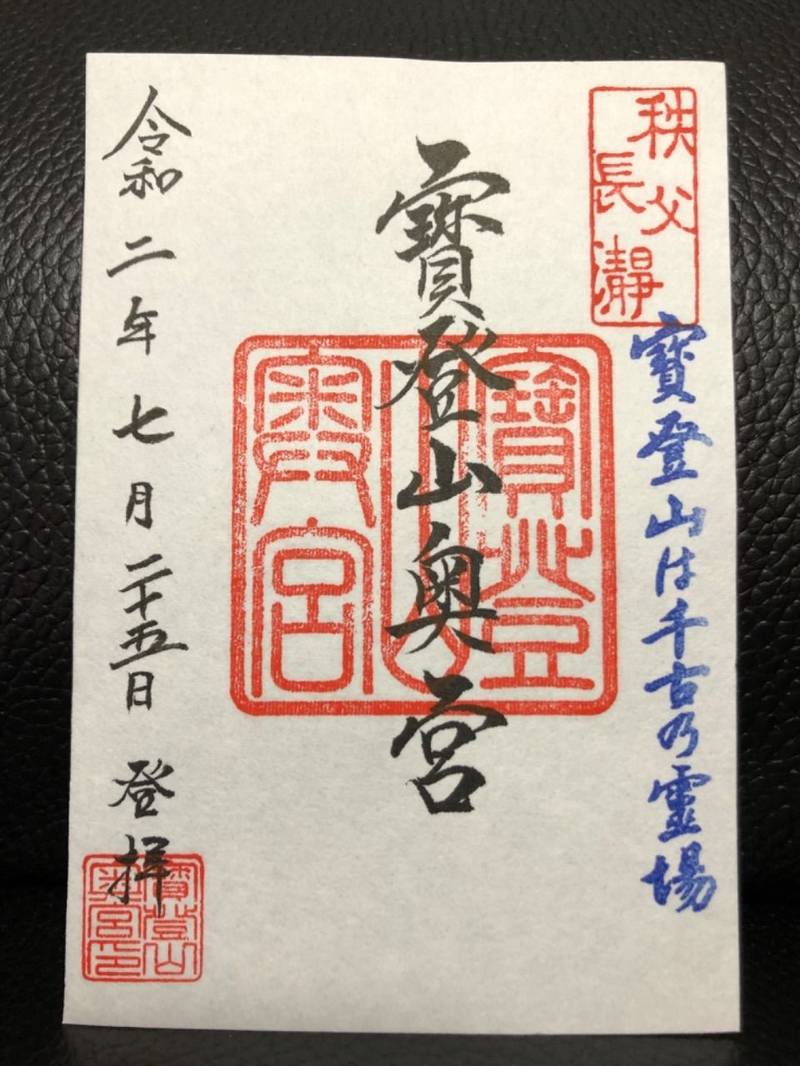 秩父
長瀞
寶登山は千古乃靈場
寶登山奥宮
寶登山奥宮
令和二年七月二十五日 登拝
寶登山
奥宮印